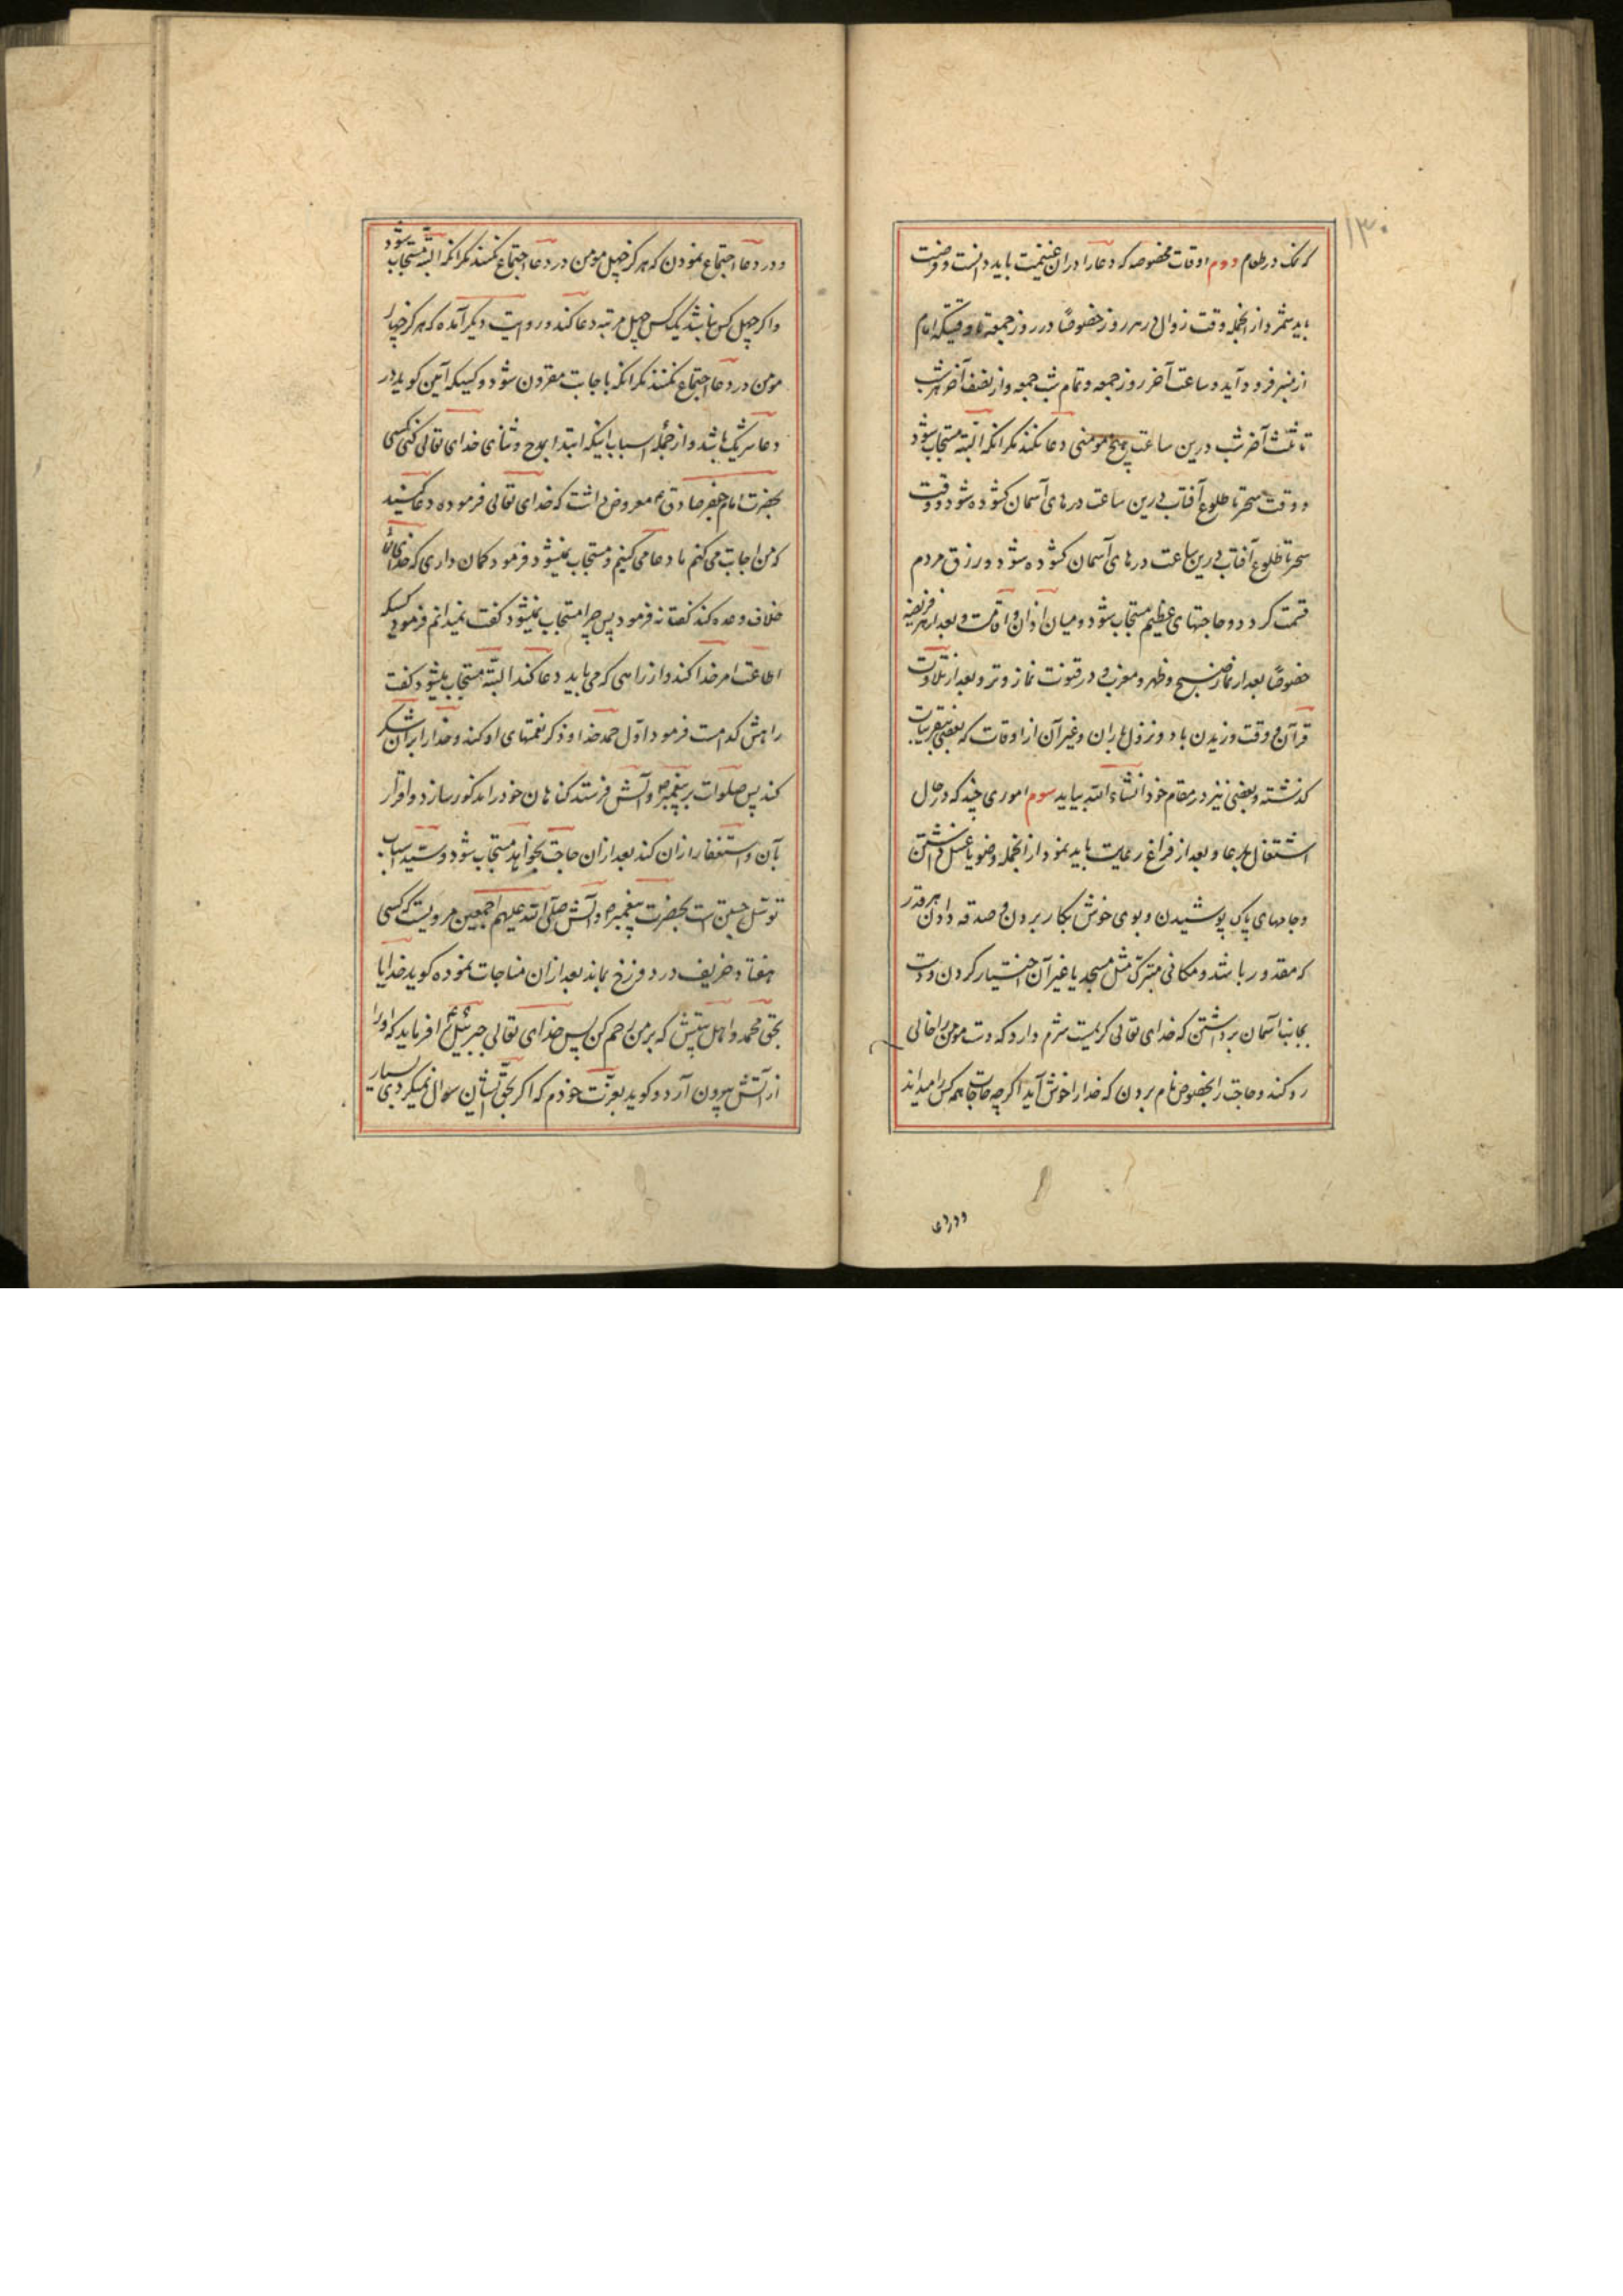 ۱۳۰
که نمک در طعام دوم اوقات مخصوصه که دعا را در آن غنیمت باید دانست و فرصت
باید شمرد از انجمله وقت زوال در هر روز خصوصًا در روز جمعه تا وقتیکه امام
از منبر فرود آید و ساعت آخر روز جمعه و تمام شب جمعه و از نصف آخر هر شب
تا ثلث آخر شب درین ساعت هیچ مومنی دعا نکند مکر انکه البته مستجاب شود
و وقت سحر تا طلوع آفتاب درین ساعت درهای آسمان کشوده شود و وقت
سحر تا طلوع آفتاب درین ساعت درهای آسمان کشوده شود و رزق مردم
قسمت کردد و حاجتهای عظیم مستجاب شود و میان اذان و اقامت و بعد از هر فریضه
خصوصًا بعد از نماز صبح و ظهر و مغرب و در قنوت نماز وتر و بعد از تلاوت
قرآن و وقت وزیدن باد و نزول باران و غیر آن از اوقات که بعضی بتقریبات
کذشته و بعضی نیز در مقام خود انشاء الله بیاید سوم اموری چند که در حال
اشتغال بدعا و بعد از فراغ رعایت باید نمود از انجمله وضو یا غسل داشتن
و جامهای پاک پوشیدن و بوی خوش بکار بردن و صدقه دادن هر قدر
که مقدور باشد و مکانی متبرک مثل مسجد یا غیر آن اختیار کردن و دست
بجانب آسمان برداشتن که خدای تعالی کریمست شرم دارد که دست مومن را خالی
رد کند و حاجت را بخصوص نام بردن که خدا را خوش آید اکرچه حاجات همه کس را میداند
و در دعا
و در دعا اجتماع نمودن که هر کز چهل مومن در دعا اجتماع نکنند مکر انکه البته مستجاب شود
و اکر چهل کس نباشد یک کس چهل مرتبه دعا کند و در روایت دیکر آمده که هر کز چهار
مومن در دعا اجتماع نکنند مکر انکه باجابت مقرون شود و کسیکه آمین کوید در
دعا شریک باشد و از جمله اسباب اینکه ابتدا بمدح و ثنای خدای تعالی کنی کسی
بحضرت امام جعفر صادق ع معروض داشت که خدای تعالی فرموده دعا کنید
که من اجابت می کنم ما دعا می کنیم و مستجاب نمیشود فرمود کمان داری که خدای تعالی
خلاف وعده کند کفت نه فرمود پس چرا مستجاب نمیشود کفت نمیدانم فرمود کسیکه
اطاعت امر خدا کند و از راهی که می باید دعا کند البته مستجاب میشود کفت
راهش کدامست فرمود اول حمد خدا و ذکر نعمتهای او کند و خدا را بر آن شکر
کند پس صلوات بر پیغمبر و آلش فرستد کناهان خود را مذکور سازد و اقرار
بآن و استغفار از آن کند بعد از ان حاجت بخواهد مستجاب شود و سید اسباب
توسل جستن است بحضرت پیغمبر و آلش صلی الله علیهم اجمعین مرویست که کسی
هفتاد خریف در دوزخ بماند بعد از ان مناجات نموده کوید خدایا
بحق محمد و اهل بیتش که بر من رحم کن پس خدای تعالی جبرئیل ع را فرماید که او را
از آتش بیرون آرد و کوید بعزت خودم که اکر بحق ایشان سوال نمیکردی بسیار